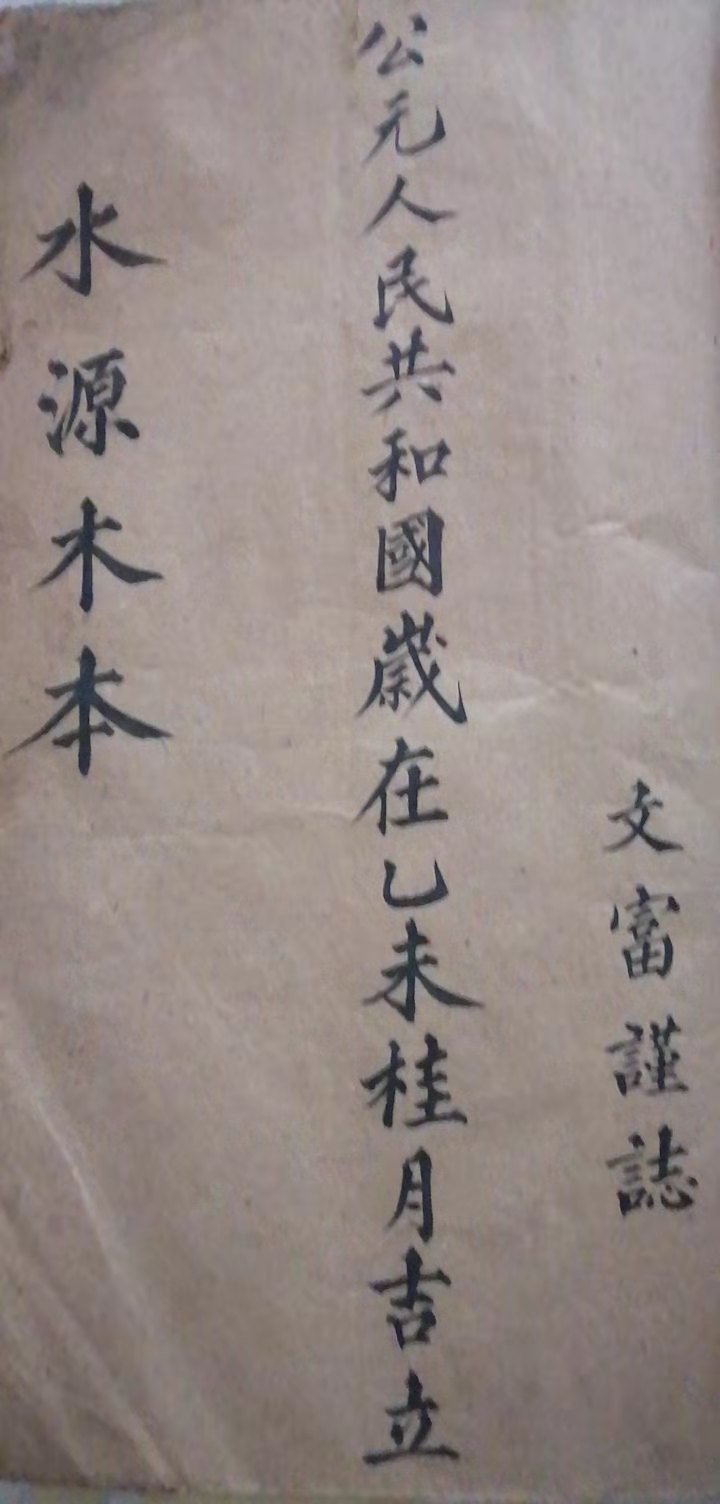 文富謹誌
公元人民共和國歲在乙未桂月吉立
水源木本